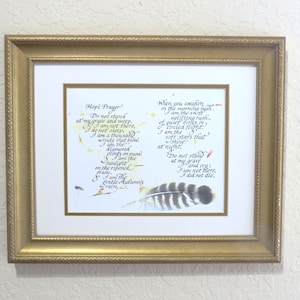 Hopi Prayer
Do not stand
at my grave and weep.
I am not there,
I do not sleep.
I am a thousand
winds that blow.
I am the
diamond
glints on snow.
I am the
sunlight
on ripened
grain.
I am the
gentle Autumn's
rain.
When you awaken
in the morning hush,
I am the swift
uplifting rush
of quiet birds in
circled flight.
I am the
soft stars that
shine
at night.
Do not stand
at my grave
and cry.
I am not there,
I did not die.